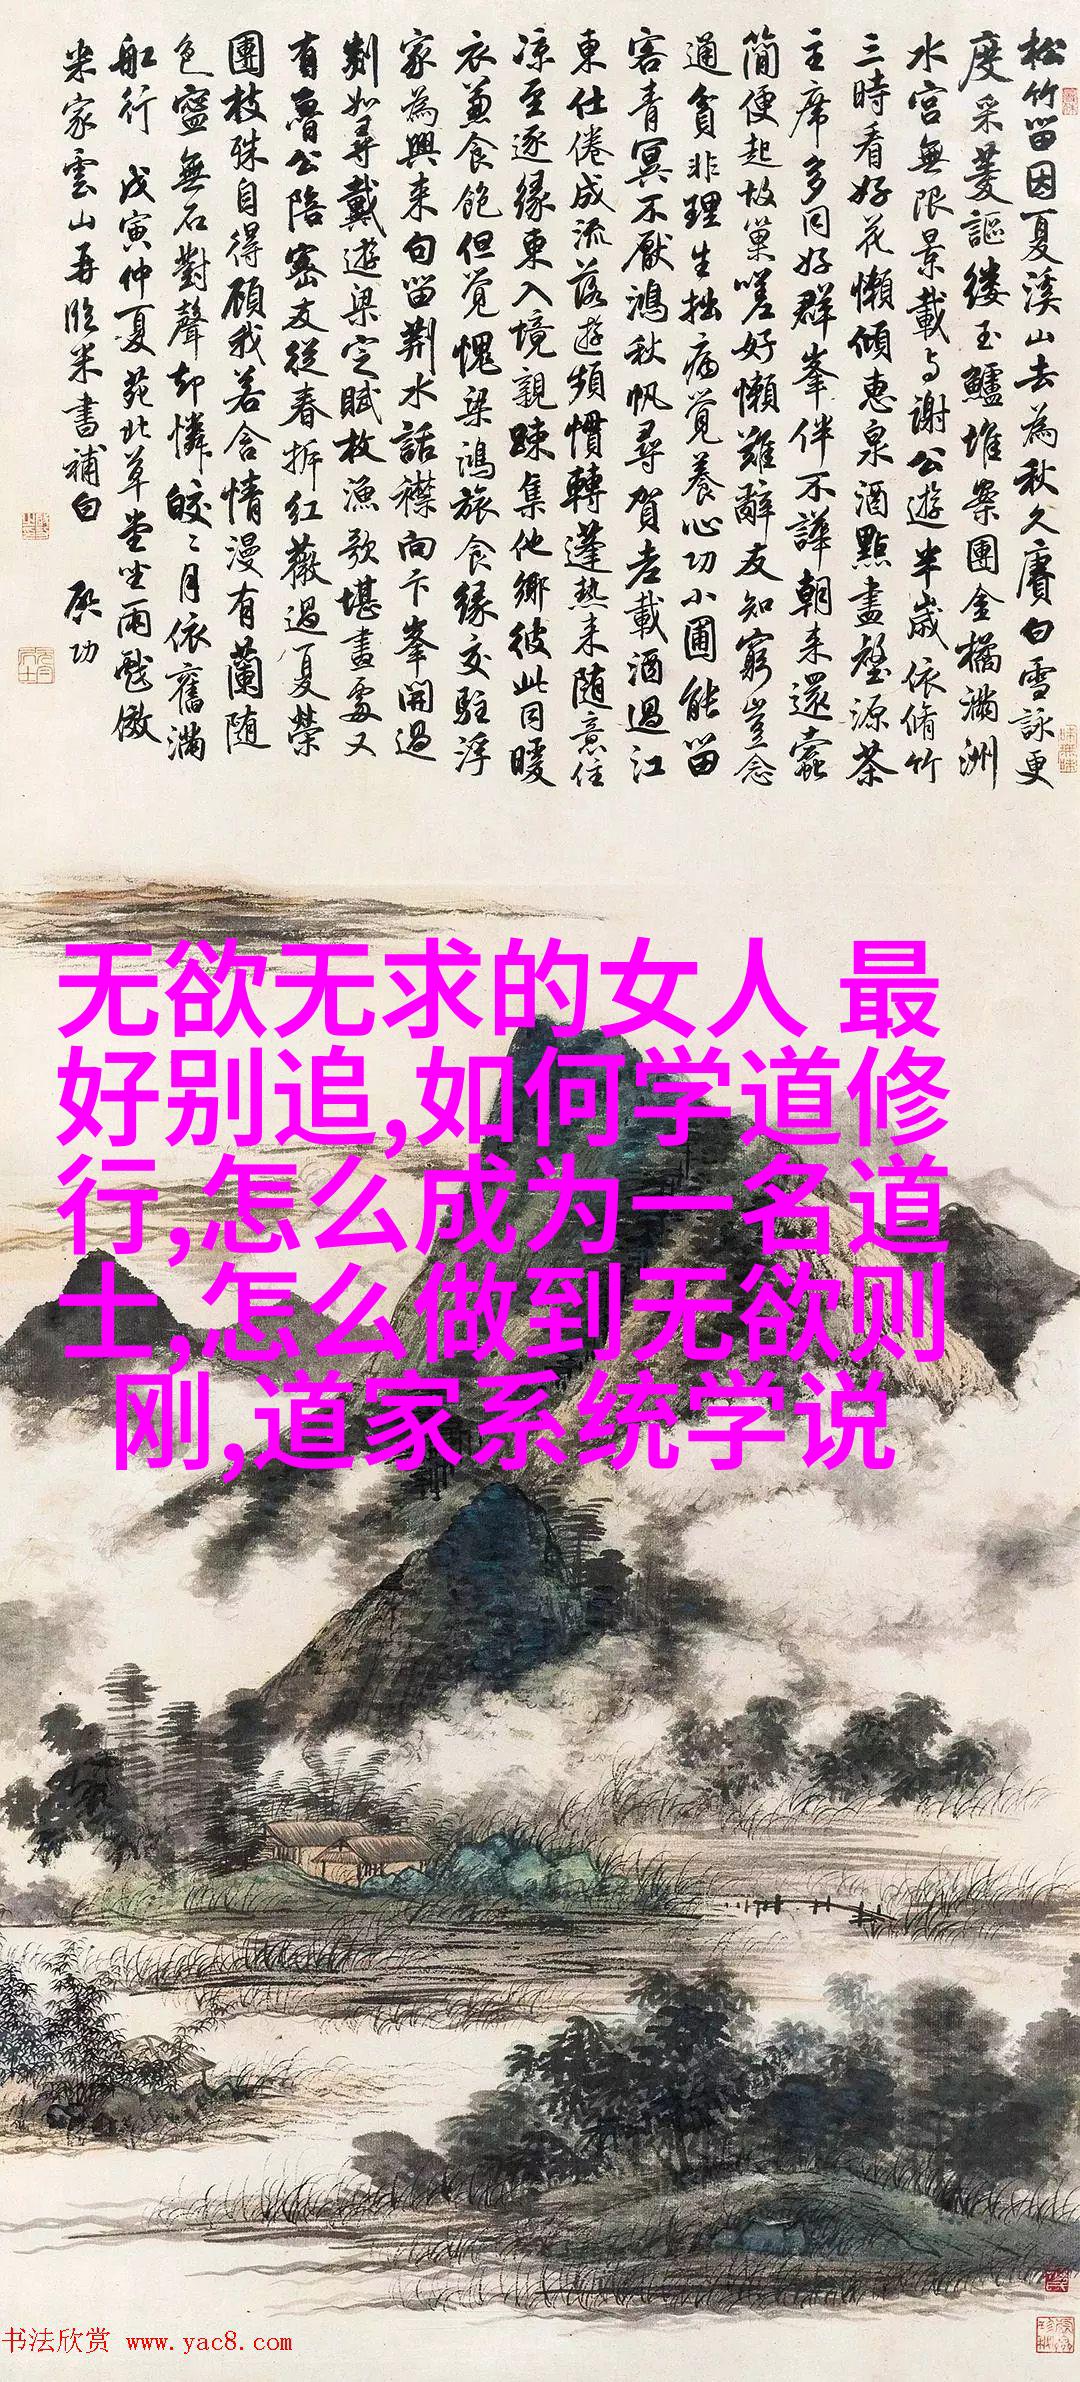 松竹留因夏溪山去為秋久賡白雪詠更
度采菱謳縷玉鱸堆案團金橘滿洲
水宮無限景載與謝公遊半歲依脩竹
三時看好花懶傾惠泉酒點盡壑源茶
主席多同好群峯伴不譁朝来還蠹
簡便起故巢嗟好懶難辭友知窮豈念
通貧非理生拙病覺養心功小圃能留
客青冥不厭鴻秋帆尋賀老載酒過江
東仕倦成流落遊頻慣轉蓬熱来随意住
凉至逐緣東入境親踈集他鄉彼此同暖
衣兼食飽但覚愧梁鴻旅食緣交駐浮
家為興来句留荆水話襟向卞峯開過
剡如尋戴遊梁定賦枚漁歌堪畫處又
有魯公陪密友從春拆紅薇過夏榮
團枝殊自得顧我若含情漫有蘭随
色寧無石對聲却憐皎〻月依舊滿
舡行 戊寅仲夏苑北草堂坐雨戲倣
米家雲山再臨米書補白 啓功
无欲无求的女人 最
好别追,如何学道修
行,怎么成为一名道
士,怎么做到无欲则
刚,道家系统学说
书法欣赏 www.yac8.com